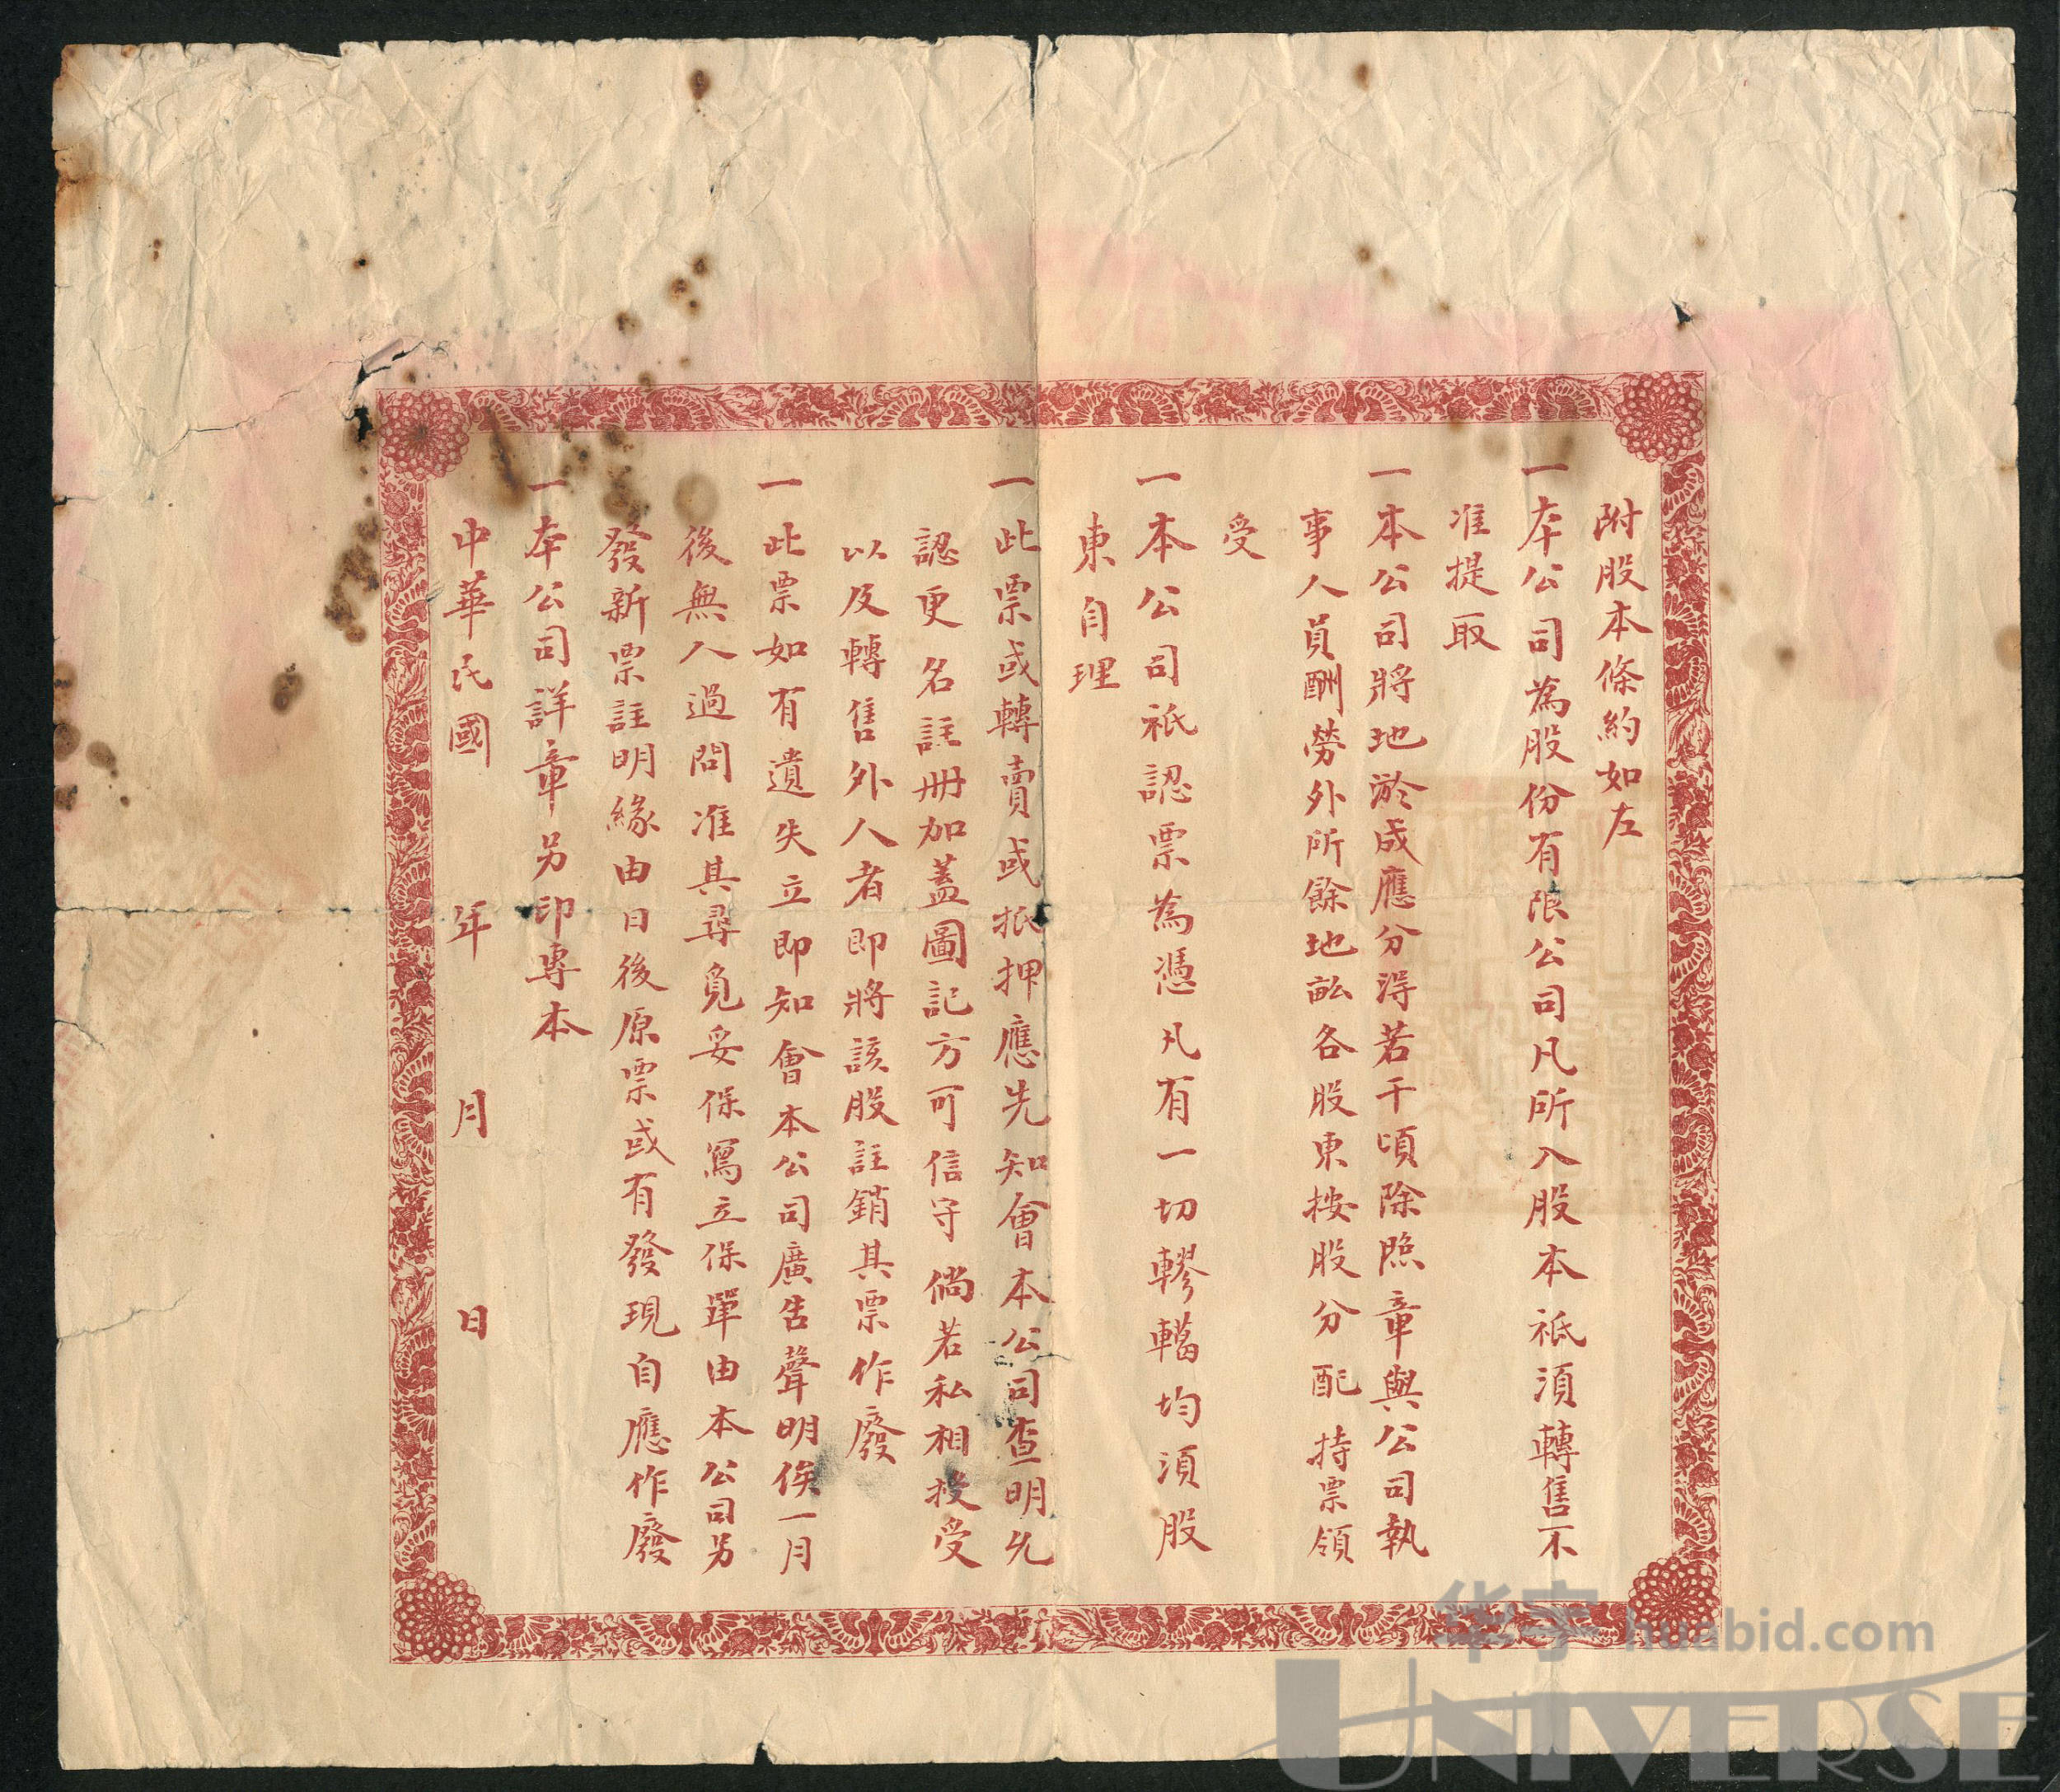 附股本條約如左
一本公司為股份有限公司凡所入股本祗須轉售不
准提取
一本公司將地淤成應分淂若干頃除照章與公司執
事人員酬勞外所餘地畝各股東按股分配持票領
受
一本公司祇認票為憑凡有一切轇轕均須股
東自理
一此票或轉賣或抵押應先知會本公司查明允
認更名註冊加蓋圖記方可信守倘若私相授受
以及轉售外人者即將該股註銷其票作廢
一此票如有遺失立即知會本公司廣告聲明俟一月
後無人過問准其尋覓妥保寫立保單由本公司另
發新票註明緣由日後原票或有發現自應作廢
一本公司詳章另印專本
中華民國 年 月 日
华宇 huabid.com
UNIVERSE